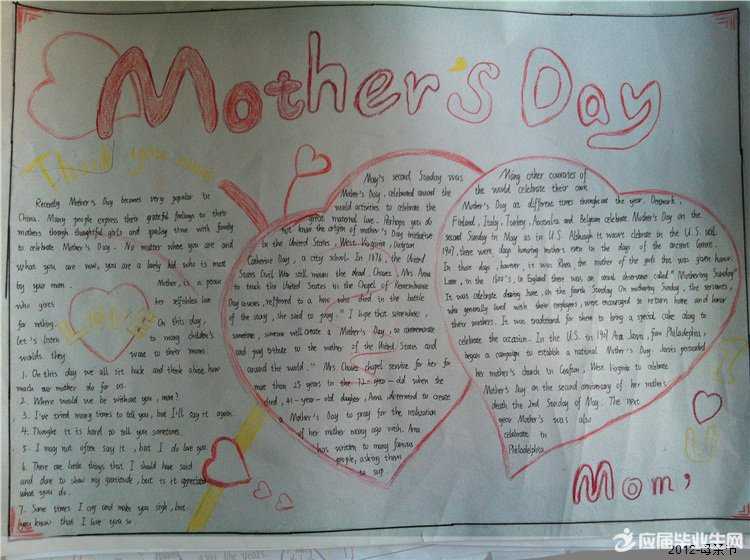 Mother's Day
Thank you mom
Recently Mother's Day becomes very popular in
China. Many people express their grateful feelings to their
mothers though thoughtful girls and spaling time with family
to celebrate Mother's Day. No matter where you are and
what you are now, you are a lovely kid who is most
by your mom. Mother, is a person
who gives her selfishless love
for nothing. On this day,
Let's listen to many children's
words they want to their mom
1. On this day we all sit back and think about how
much our mother do for us.
2. Where would we be without you, mom?
3. I've tried many times to tell you, but I'll say it again.
4. Thought it is hard to tell you sometimes.
5. I may not often say it, but I do love you.
6. There are little things that I should have said
and done to show my gratitude, but is it appreciated
what you do.
7. Some times I cry and make you sigh, but
you know that I love you so
LOVE
May's second Sunday was
Mother's Day, celebrated around the
world activities to celebrate the
great maternal love. Perhaps you do
not know the origin of mother's Day Initiative
in the United States, West Virginia, Dutgran
Catherine Day, a city school. In 1876, the United
States Civil War still mourn the dead, Chavez, Mrs. Anna
to teach the United States in the Chapel of Remembrance
Day courses, referred to a hero who died in the battle
of the story, she said to pray: "I hope that somewhere,
sometime, someone will create a Mother's Day, to commemorate
and pay tribute to the mother of the United States and
around the world." Mrs Chavez chapel service for her for
more than 25 years in the 72-year-old when she
died, 41-year-old daugher, Anna, determined to create
a Mother's Day to pray for the realization
of her mother many ago wish. Ana
has written to many famous
people, asking them
to sup
Many other countries of
the world celebrate their own
Mother's Day at different times throughout the year. Denmark,
Finland, Italy, Turkey, Australia and Belgium celebrate Mother's Day on the
second Sunday in May as in U.S. Although it wasn't celebrate in the U.S. until
1907, there were days honoring mothers even in the days of the ancient Greece.
In those days, however, it was Rhea, the mother of the gods that was given honor.
Later, in the 1600's, in England there was an annual observance called "Mothering Sunday"
It was celebrate during , on the fourth Sunday. On mothering Sunday, the servants,
who generally lived with their employers, were encouraged to return home and honor
their mothers. It was traditional for them to bring a special cake along to
celebrate the occasion. In the U.S. in 1907 Ana Jarvis, from Philadelphia,
began a campaign to establish a national Mother's Day. Jarvis persuaded
her mother's church in Grafton, West Virginia to celebrate
Mother's Day on the second anniversary of her mother's
death the 2nd Sunday of May. The next
year Mother's was also
celebrate in
Philadelphia.
Mom,
应届毕业生网
2012-母亲节